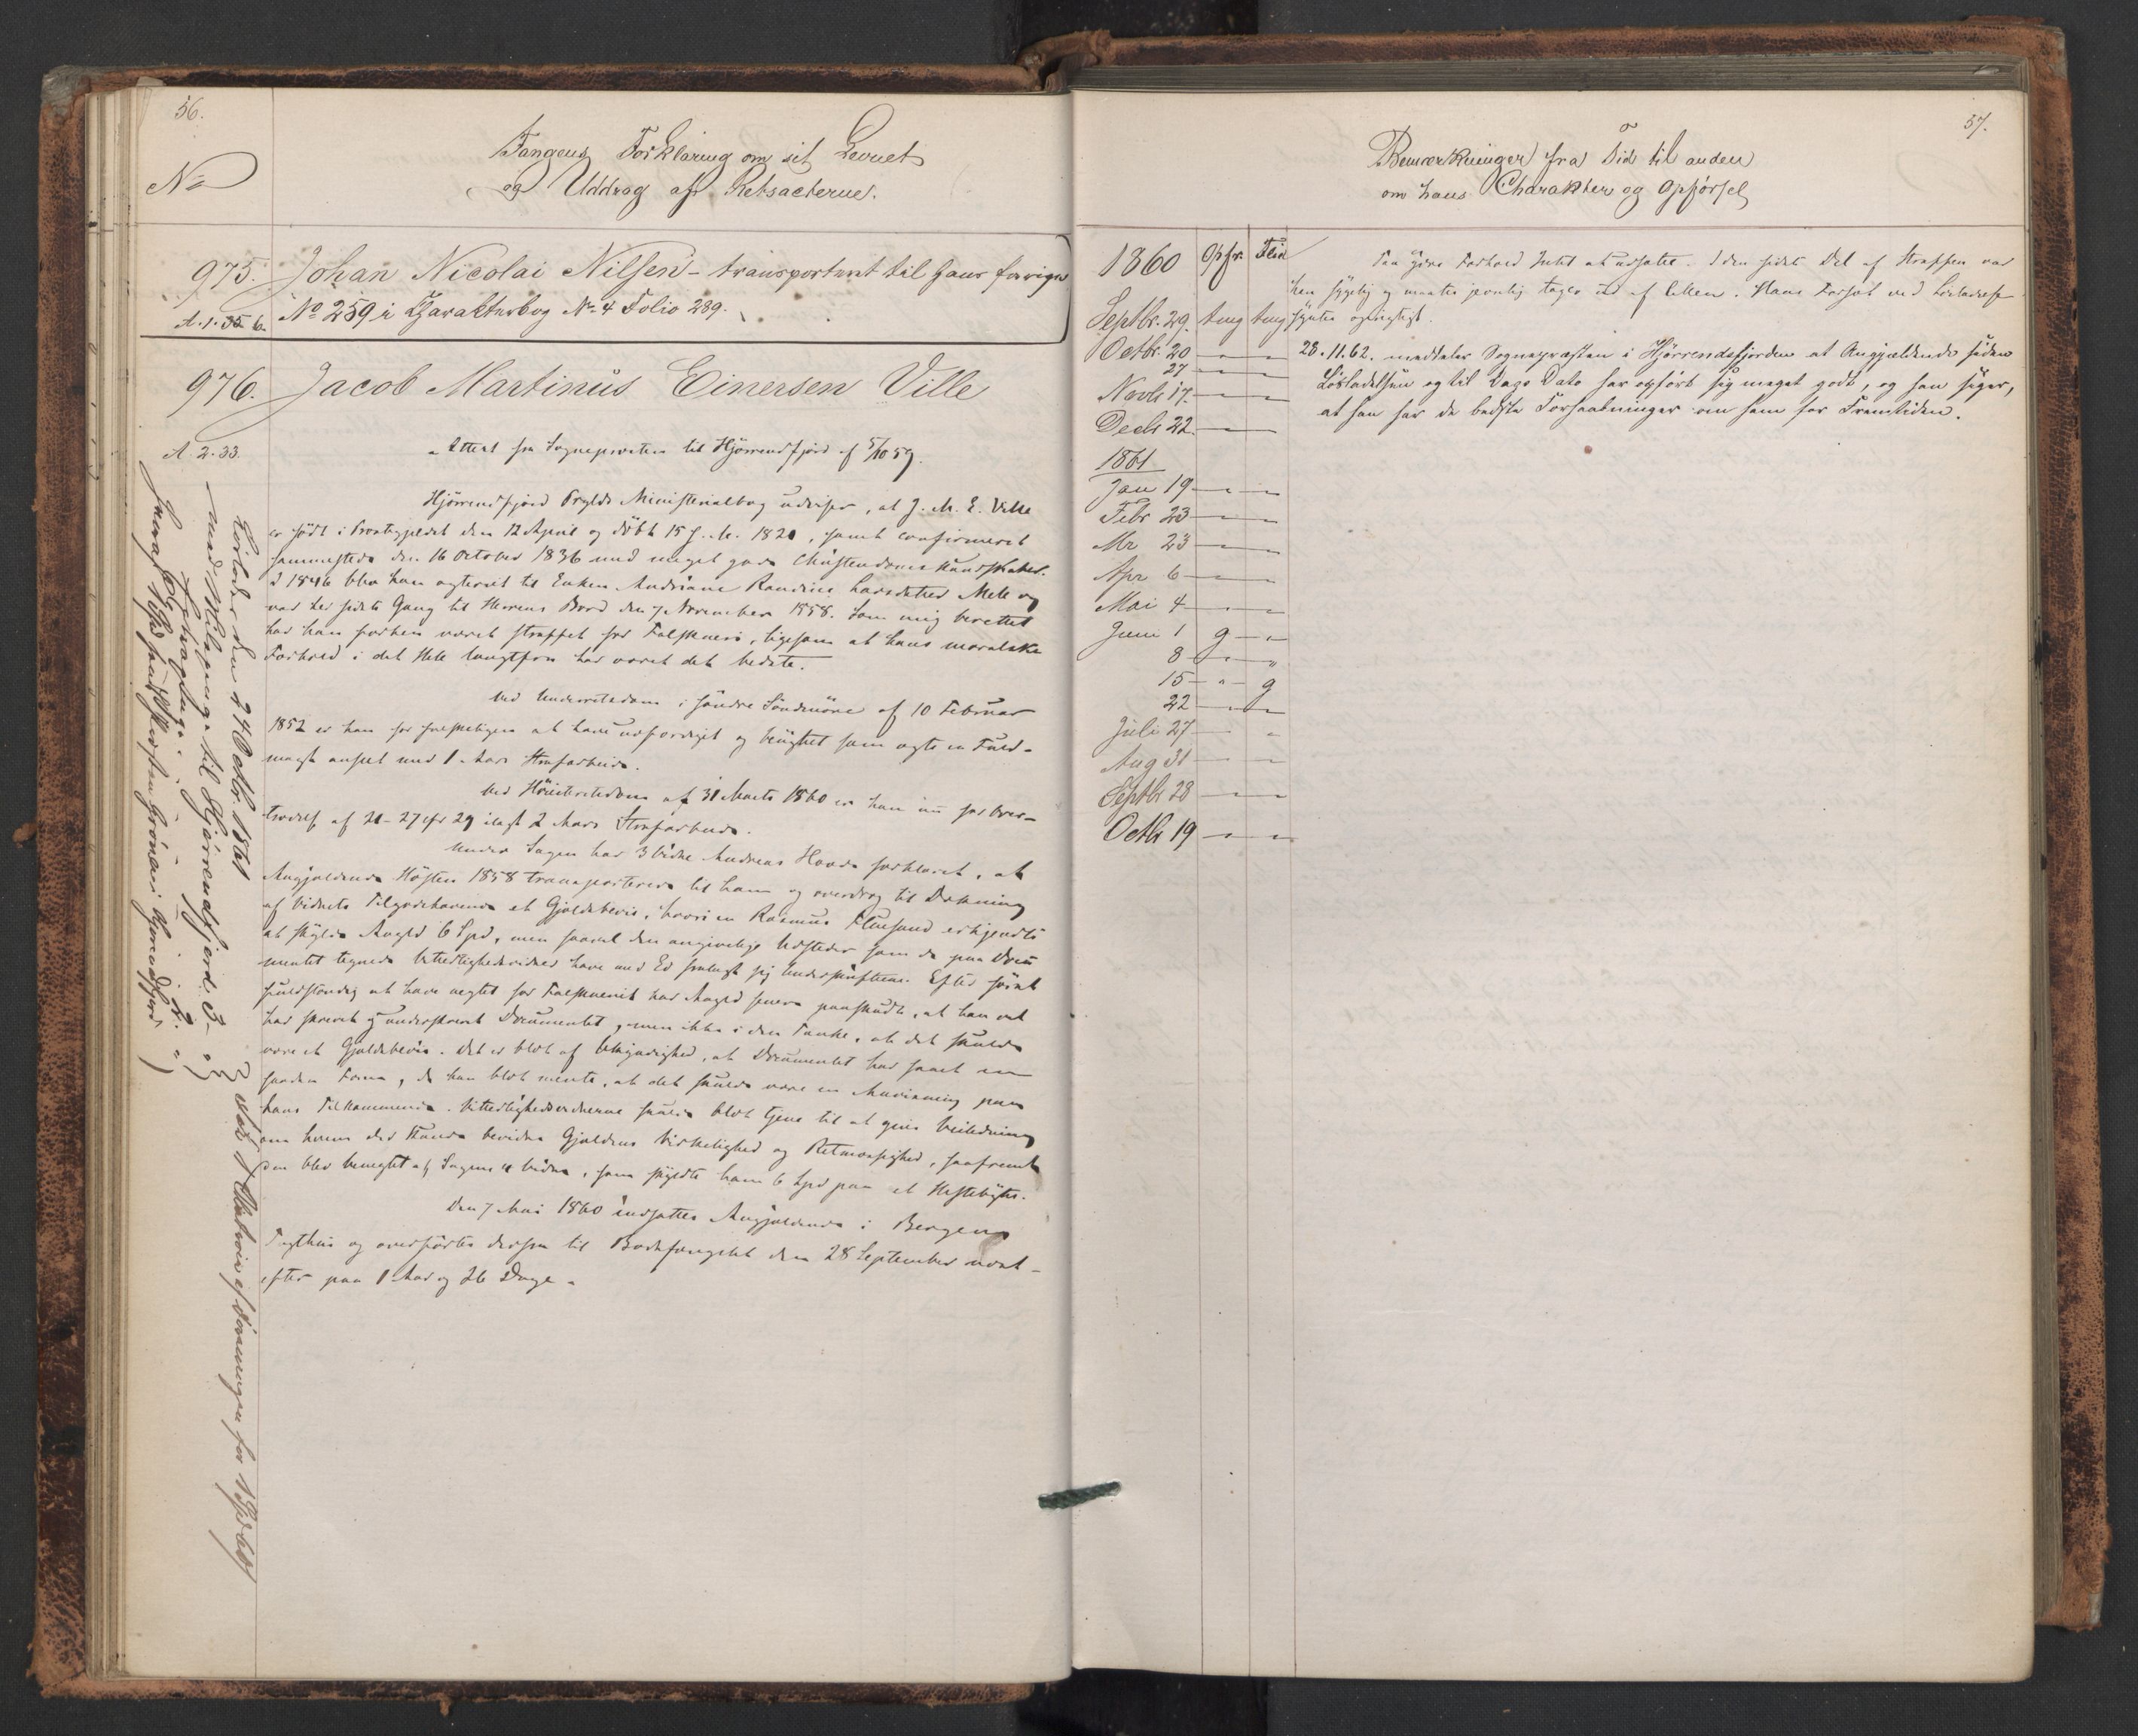 56.
No
Fangens Forklaring om sit Levnet
og Uddrag af Retsacterne.
975. Johan Nicolai Nilsen - transporteret til hans forrige
A. 1. 35. 6. No 259 i Charakterbog No 4 Folio 289.
976. Jacob Martinus Einersen Ville
A 2. 33.
Attest fra Sognepresten til Hjörrendfjord af 5/10 59.
Hjörrendfjord Prglds Ministerialbog udviser, at J. M. E. Ville
er född i Prestegjeldet den 12 April og döbt 15 s. M. 1820, samt confirmeret
sammesteds den 16 October 1836 med meget gode Christendomskundskaber.
I 1846 blev han egteviet til Enken Andriane Larsdatter Mele og
var her sidste Gang til Herrens Bord den 7 November 1858. Som mig berettet
har han forhen været straffet for Falskneri, ligesom at hans moralske
Forhold i det Hele langtfra har været det bedste.
Ved Underretsdom i Söndre Söndmöre af 10 Februar
1852 er han for forsætligen at have udfærdiget og benyttet som ægte en Fuld-
magt anseet med 1 Aars Strafarbeide.
Ved Höiesteretsdom af 31 Marts 1860 er han nu for Over-
trædelse af 21-27 cfr 29 ilagt 2 Aars Strafarbeide.
Under Sagen har 3 Vidne Andreas forklaret, at
Angjeldende Hösten 1858 transporterede til ham og overdrog til Dekning
af Vidnets Tilgodehavende et Gjeldsbevis, hvori en Rasmus erkjendte
at skylde Angld 6 Spd, men saavel den angivelige Udsteder som de paa Docu
mentet tegnede Vitterlighedsvidner have med Ed fralagt sig Underskrifterne. Efter först
fuldstændig at have negtet for Falskneriet har Angld senere paastaaet, at han vel
har skrevet og underskrevet Documentet, men ikke i den Tanke, at det skulde
være et Gjeldsbevis. Det er blot af Ukyndighed, at Documentet har faaet en
saadan Form, da han blot mente, at det skulde være en Anvisning paa
hans Tilkommende. Vitterlighedsvidnerne skulde blot tjene til at give Veiledning
om hvem der kunde bevidne Gjeldens Virkelighed og Retmæssighed, saafremt
den blev benegtet af Sagens 4 Vidne, som skyldte ham 6 Spd paa et Hestebytte.
Den 7 Mai 1860 indsattes Angjeldende i Bergens
Tugthus og overförtes derfra til Bodsfængslet den 28 September næst-
efter paa 1 Aar og 26 Dage.
Löslades den 24 Octbr. 1861
med til Hjörrendfjord. 3 -
57.
Bemærkninger fra Tid til anden
om hans Charakter og Opförsel
1860 Opfr. Flid
Septbr. 29. tmg tmg
Octbr. 20 " "
27 " "
Novb 17. " "
Decb 22. " "
1861
Jan 19 " "
Febr 23 " "
Mr 23 " "
Apr 6 " "
Mai 4 " "
Juni 1 g "
8 " "
15 " g
22 " "
Juli 27 " "
Aug 31 " "
Septb 28 " "
Octb 19 " "
Paa Forhold Intet at udsætte. I den sidste Del af Straffen var
han sygelig og maatte jevnlig tages ud af Cellen. Hans Forsæt ved Lösladelse
syntes oprigtigt.
28. 11. 62. meddeler Sognepræsten i Hjörrendsfjorden at Angjældende siden
Lösladelsen og til Dags Dato har opfört sig meget godt, og han siger,
at han har de bedste Forhaabninger om ham for Fremtiden.